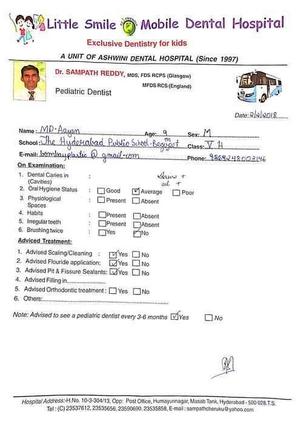 Little Smile Mobile Dental Hospital
Exclusive Dentistry for kids
A UNIT OF ASHWINI DENTAL HOSPITAL (Since 1997)
Dr. SAMPATH REDDY, MDS, FDS RCPS (Glasgow)
MFDS RCS (England)
Pediatric Dentist
Date:
Name: MD-Aayan Age: 9 Sex: M
School: The Hyderabad Public School-Begumpet Class: V H
E-mail: bombayplastic@gmail.com Phone:
On Examination:
1. Dental Caries in (Cavities)
2. Oral Hygiene Status : Good Average Poor
3. Physiological Spaces : Present Absent
4. Habits : Present Absent
5. Irregular teeth : Present Absent
6. Brushing twice : Yes No
Advised Treatment:
1. Advised Scaling/Cleaning : Yes No
2. Advised Flouride application: Yes No
3. Advised Pit & Fissure Sealants: Yes No
4. Advised Filling in
5. Advised Orthodontic treatment : Yes No
6. Others:
Note: Advised to see a pediatric dentist every 3-6 months Yes No
Hospital Address:-H.No. 10-3-304/13, Opp: Post Office, Humayunnagar, Masab Tank, Hyderabad - 500 028.T.S.
Tel : (C) 23537612, 23535656, 23590690, 23535858, E-mail : sampathcheruku@yahoo.com